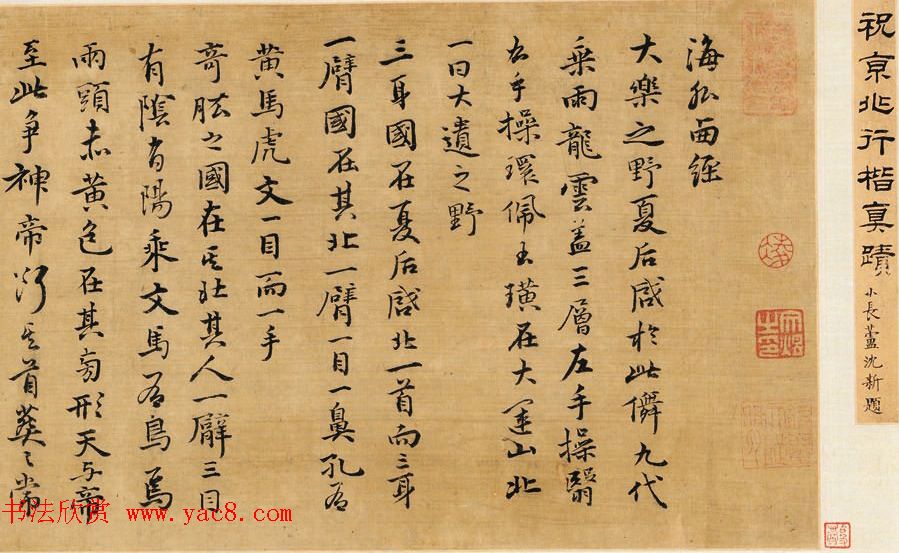 祝京兆行楷真蹟
小長蘆沈新題
海外西經
大樂之野夏后啟於此儛九代
乘兩龍雲蓋三層左手操翳
右手操環佩玉璜在大運山北
一曰大遺之野
三身國在夏后啟北一首而三身
一臂國在其北一臂一目一鼻孔有
黃馬虎文一目而一手
奇肱之國在其北其人一臂三目
有陰有陽乘文馬有鳥焉
兩頭赤黃色在其旁形天与帝
至此争神帝斷其首葬之常
书法欣赏 www.yac8.com